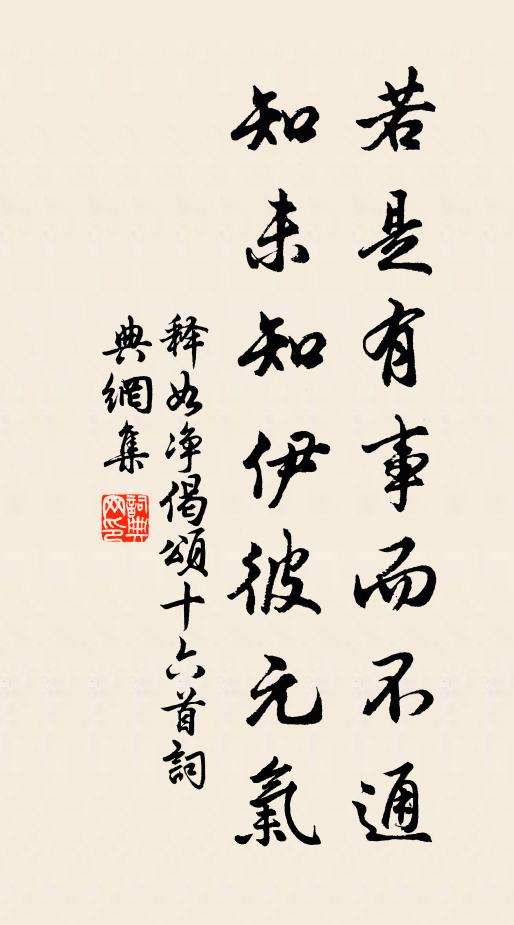 若是有事而不通
知未知伊彼元氣
释如净偈頌十六首詞
典網集
詞典網印